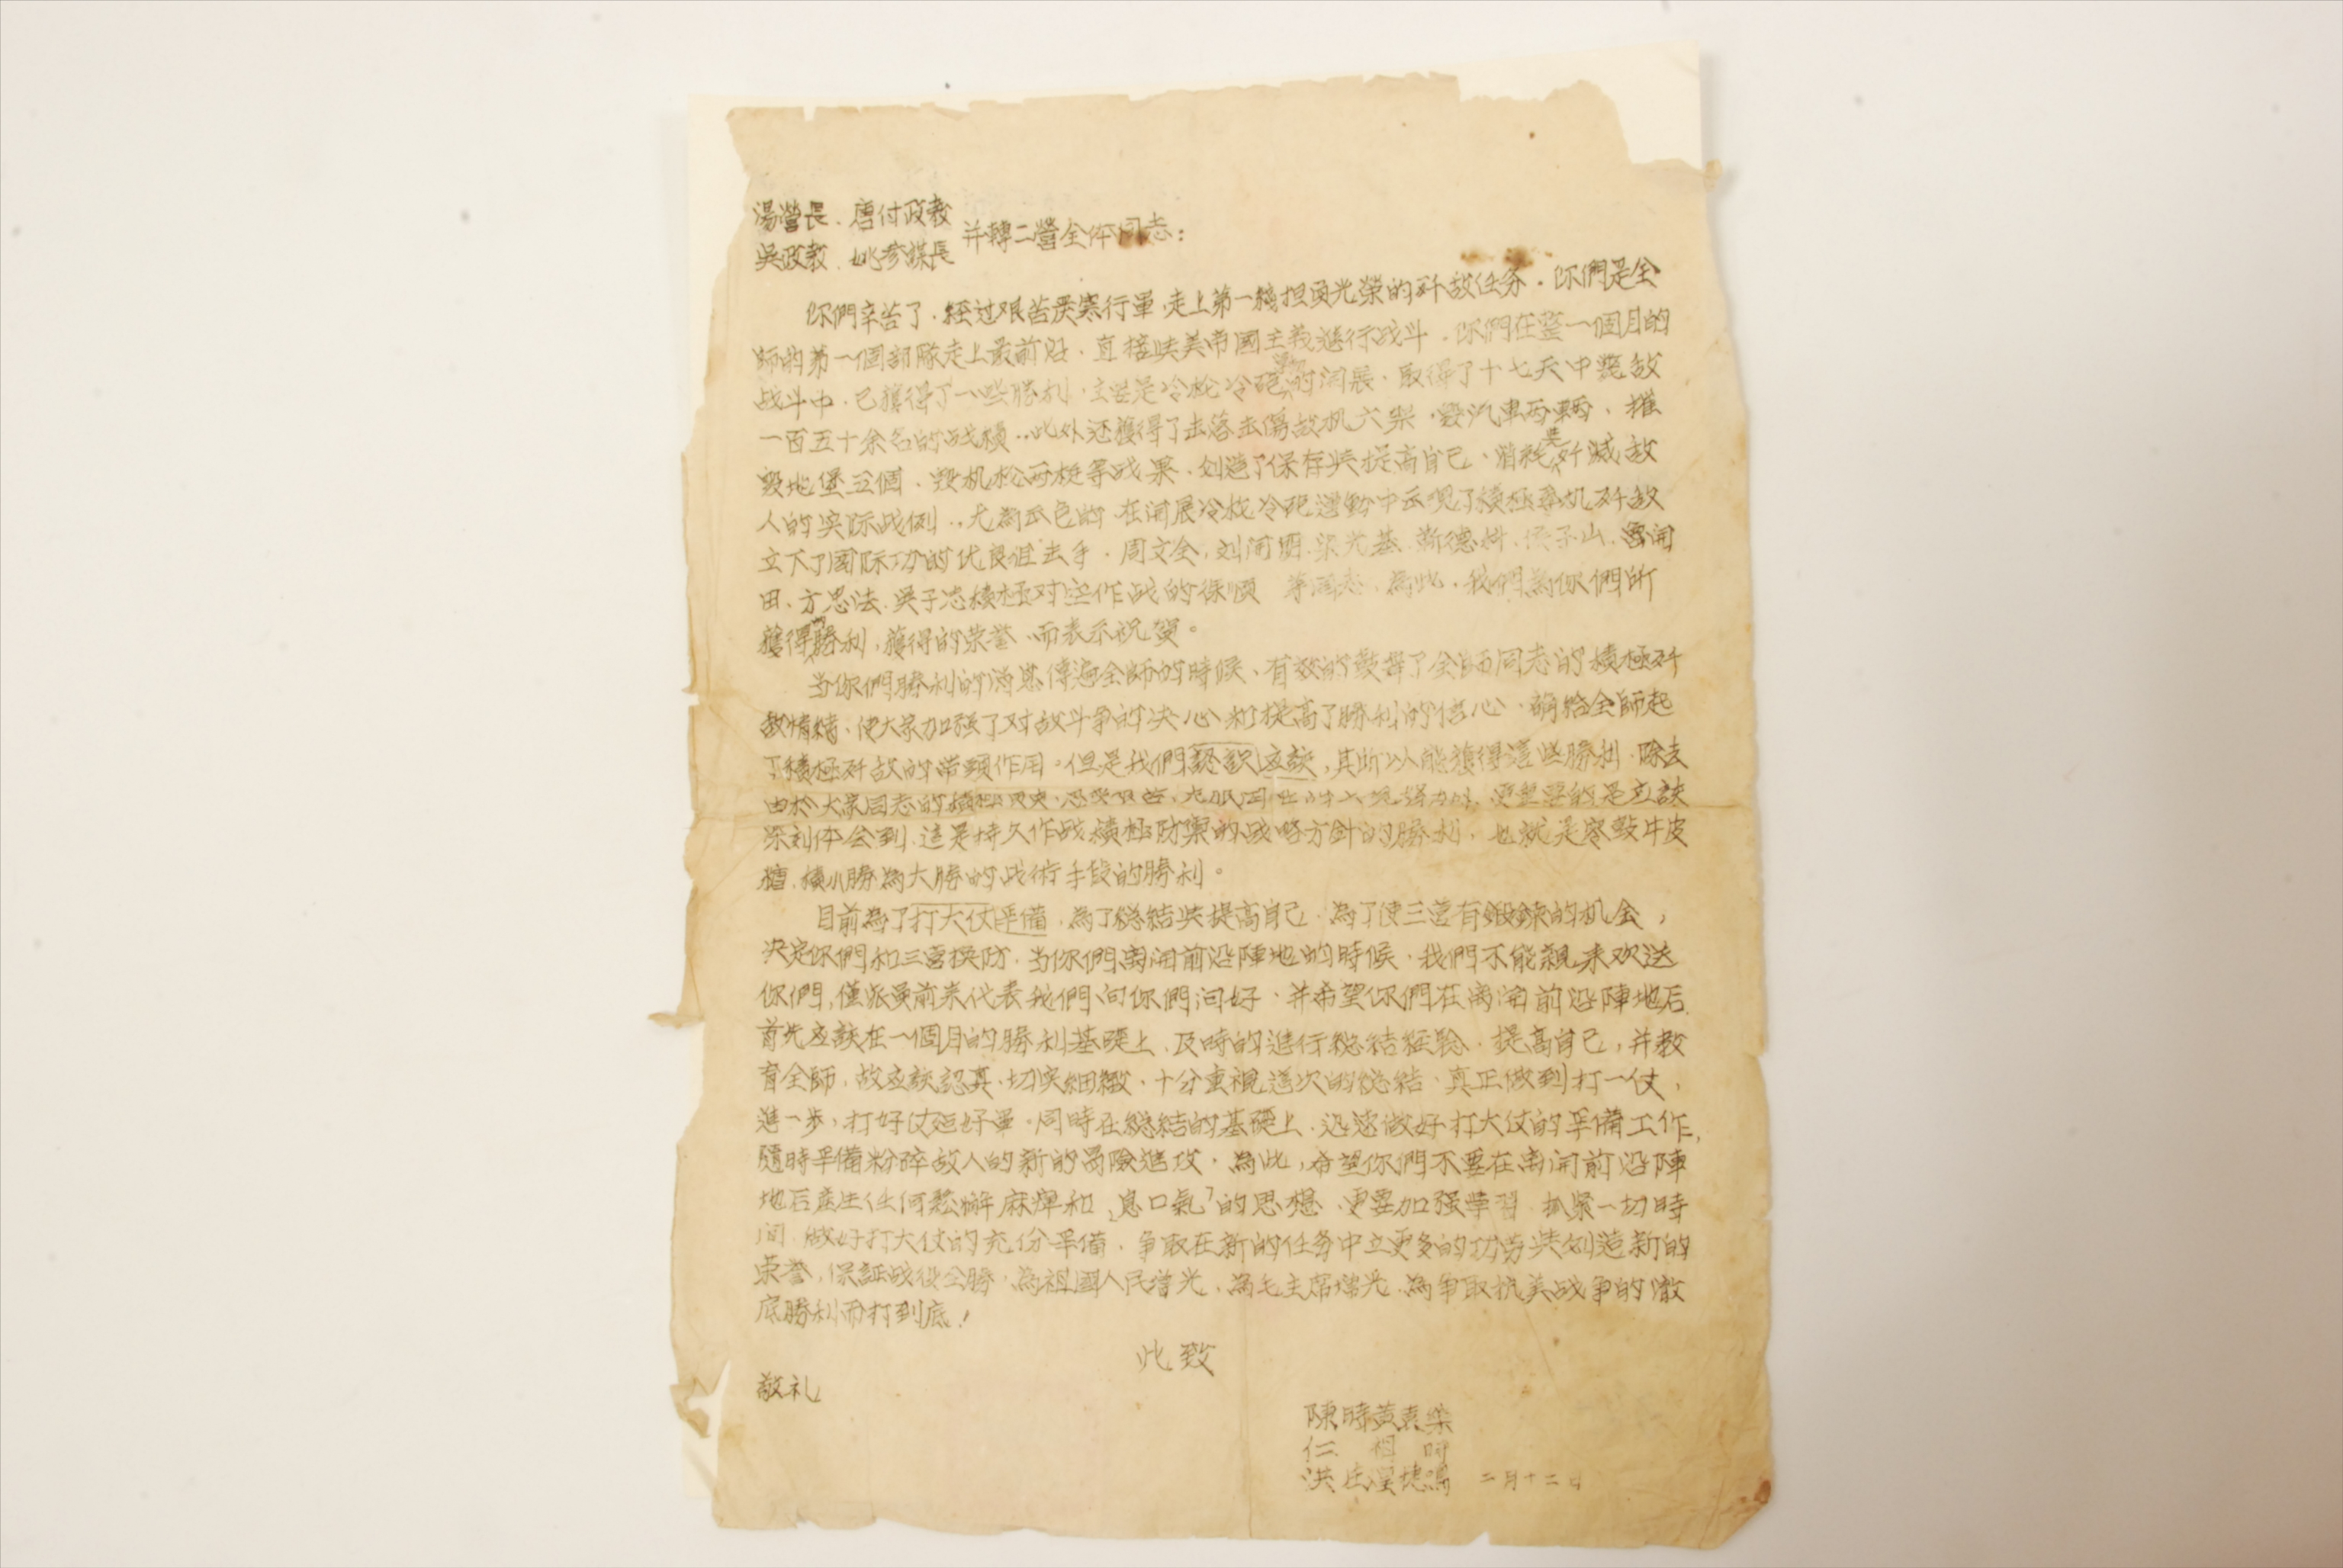 湯營長．唐付政教
吳政教．姚參謀長 并轉二營全体同志：
你們辛苦了．經过艰苦严寒行軍．走上第一綫担負光榮的歼敌任务．你們是全
師的第一個部隊走上最前沿．直接与美帝國主義進行战斗．你們在整一個月的
战斗中．已獲得了一些勝利．主要是冷枪冷砲運動的開展．取得了十七天中斃敌
一百五十余名的战績．．此外还獲得了击落击傷敌机六架．毀汽車两輛、摧
毀地堡三個．毀机枪两挺等战果．创造了保存与提高自己、消耗与歼滅敌
人的实际战例．．尤為出色的．在開展冷枪冷砲運動中出现了積極尋机歼敌
立下了國际功的优良狙击手．周文全，刘開明
田、方思法．吳子志積極对空作战的 等同志．為此．我們為你們所
獲得的勝利，獲得的荣誉．而表示祝賀。
当你們勝利的消息傳遍全師的時候、有效的鼓舞了全師同志的積極歼
敌情緒、使大家加强了对敌斗争的决心和提高了勝利的信心．确給全師起
了積極歼敌的带頭作用。但是我們認識应該，其所以能獲得這些勝利．除去
由於大家同志的積極 更重要的是应該
深刻体会到．這是持久作战積極防禦的战略方針的勝利．也就是零敲牛皮
糖．積小勝為大勝的战術手段的勝利。
目前為了打大仗準備．為了總結与提高自己．為了使三营有鍛鍊的机会，
决定你們和三营换防．当你們离開前沿陣地的時候．我們不能親来欢送
你們，僅派員前来代表我們向你們问好．并希望你們在离開前沿陣地后．
首先应該在一個月的勝利基礎上．及時的進行總結經驗．提高自己，并教
育全師．故应該認真．切实細緻．十分重視這次的總結．真正做到打一仗，
進一步，打好仗 好軍．同時在總結的基礎上．迅速做好打大仗的準備工作，
隨時準備粉碎敌人的新的冒險進攻．為此，希望你們不要在离開前沿陣
地后產生任何鬆懈麻痺和「息口氣」的思想．更要加强学習．抓緊一切時
间．做好打大仗的充份準備．争取在新的任务中立更多的功劳与创造新的
荣誉，保証战役全勝．為祖國人民增光．為毛主席增光．為争取抗美战争的徹
底勝利而打到底！
此致
敬礼
陳時黃袁柴
仁 祖 明
洪 庄 鳴 二月十二日